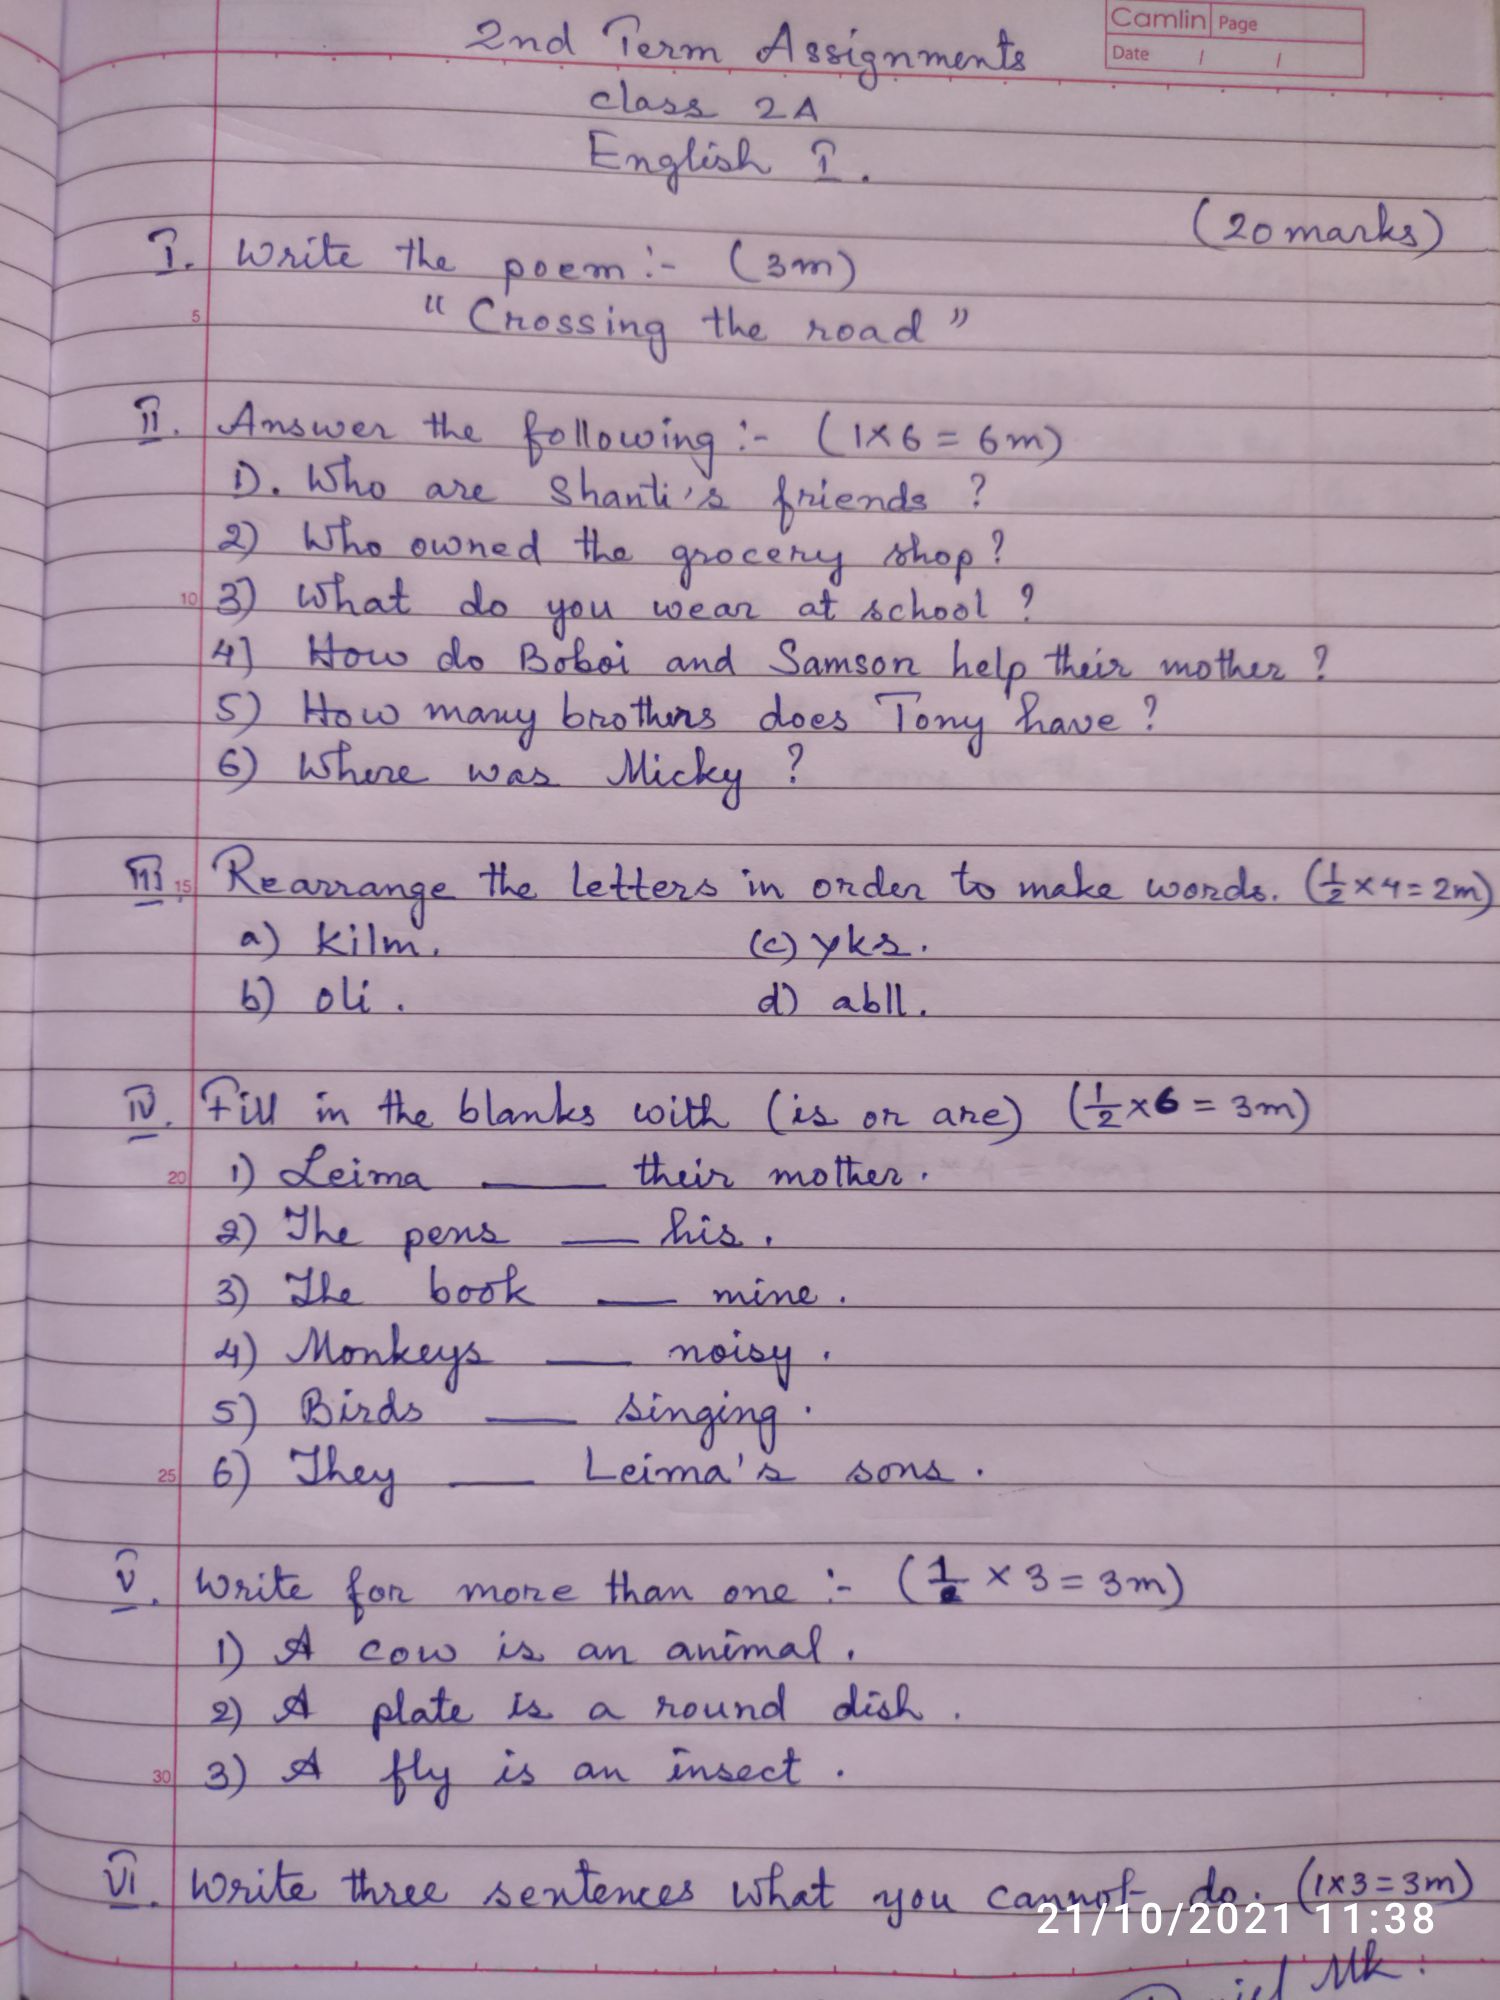 Camlin Page
Date / /
2nd Term Assignments
class 2A
English I.
(20 marks)
I. Write the poem :- (3m)
5
"Crossing the road"
II. Answer the following :- (1×6 = 6m)
1). Who are Shanti's friends ?
2) Who owned the grocery shop ?
10 3) What do you wear at school ?
4] How do Boboi and Samson help their mother ?
5) How many brothers does Tony have ?
6) Where was Micky ?
III. 15 Rearrange the letters in order to make words. (1/2 × 4 = 2m)
a) kilm. (c) yks.
b) oli. d) abll.
IV. Fill in the blanks with (is or are) (1/2 × 6 = 3m)
20 1) Leima ____ their mother.
2) The pens ___ his.
3) The book ___ mine.
4) Monkeys ___ noisy.
5) Birds ___ singing.
25 6) They ___ Leima's sons.
V. Write for more than one :- (1 × 3 = 3m)
1) A cow is an animal.
2) A plate is a round dish.
30 3) A fly is an insect.
VI. Write three sentences what you cannot do. (1×3 = 3m)
21/10/2021 11:38
Mk.